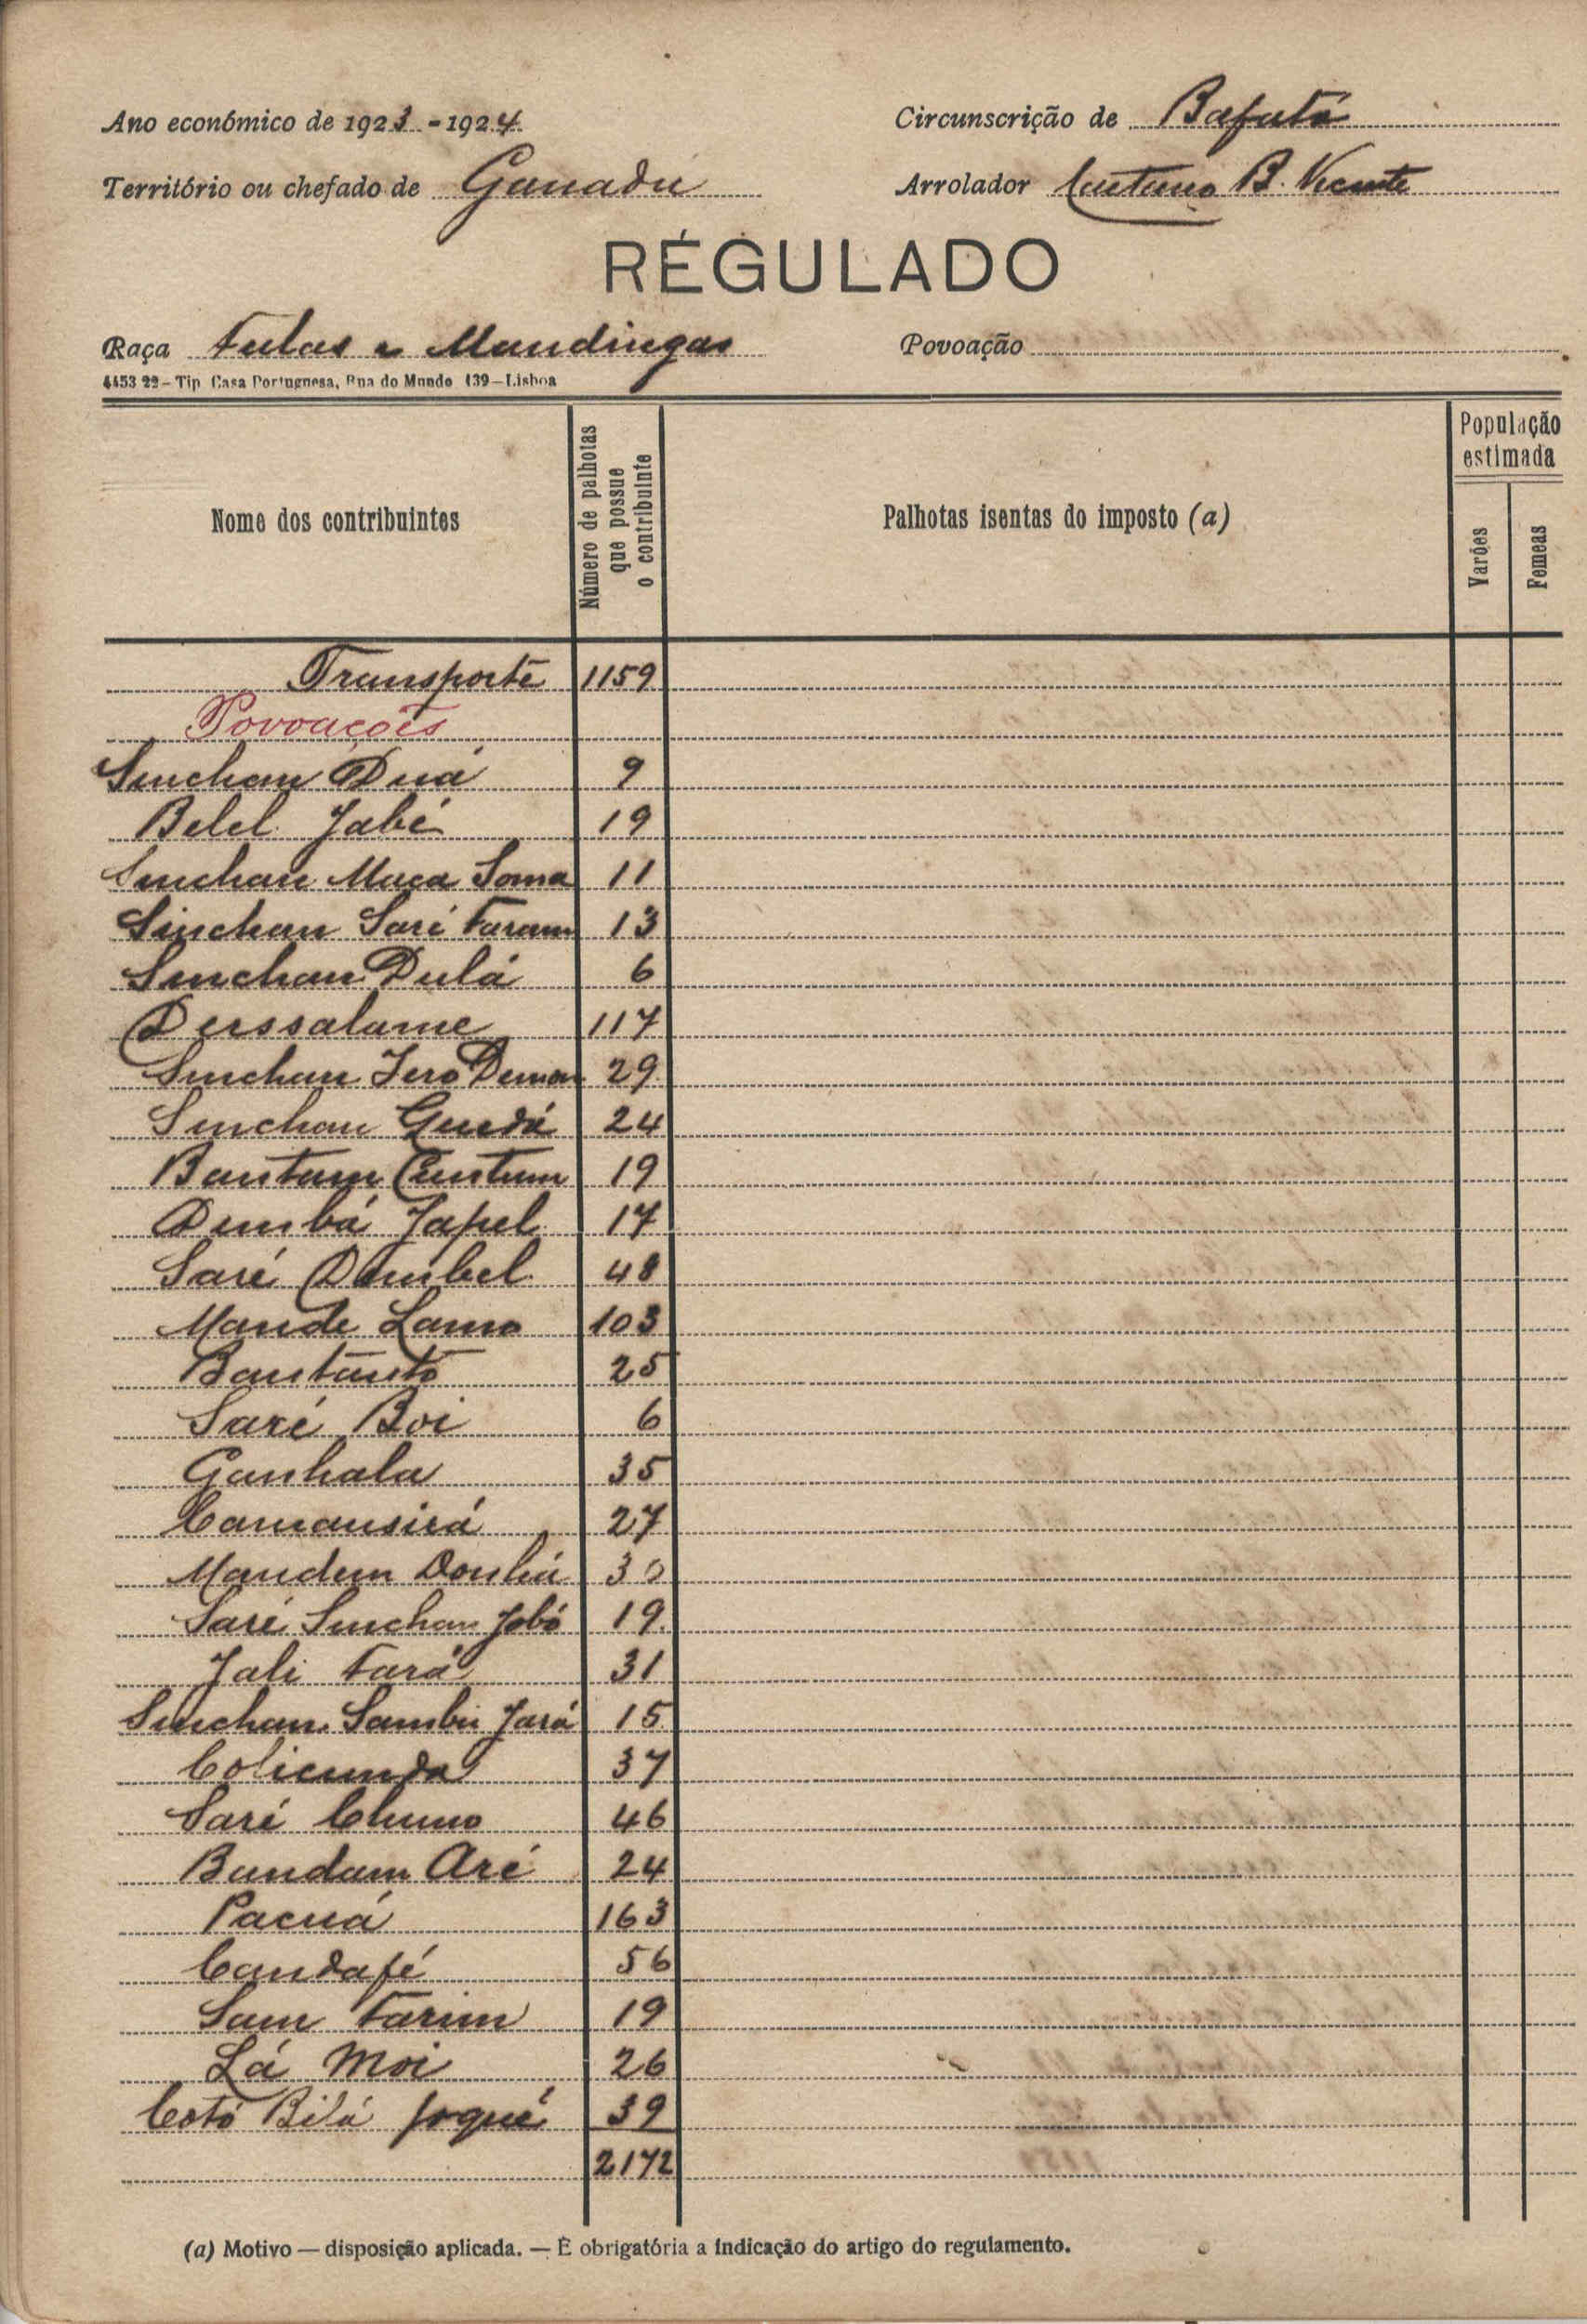 Ano económico de 1923-1924
Circunscrição de Bafatá
Território ou chefado de Ganadú
Arrolador Caetano B. Vicente
RÉGULADO
Raça Fulas e Mandingas
Povoação
4453 22 - Tip. Casa Portuguesa, Rua do Mundo 139 - Lisboa
Nome dos contribuintes
Número de palhotas que possue o contribuinte
Palhotas isentas do imposto (a)
População estimada
Varões
Femeas
Transporte 1159
Povoações
Sincham Duá 9
Belel Jabé 19
Sinchan Maca Soma 11
Sinchan Saré Faram 13
Sinchan Dulá 6
Derssalame 117
Sinchan Jero Demon 29
Sinchan Guedá 24
Bantam Cuntum 19
Demba Japel 17
Saré Dembel 48
Mande Lamo 103
Bantanto 25
Saré Boi 6
Ganhala 35
Camansirá 27
Mandem Donhá 30
Saré Sinchan Jobó 19
Jali Fará 31
Sinchan Sambu Jará 15
Colicunda 37
Saré Chumo 46
Bandam Aré 24
Pacuá 163
Candafé 56
Sam Farim 19
Lá Moi 26
Cotó Bilá Joqué 39
2172
(a) Motivo — disposição aplicada. — É obrigatória a indicação do artigo do regulamento.